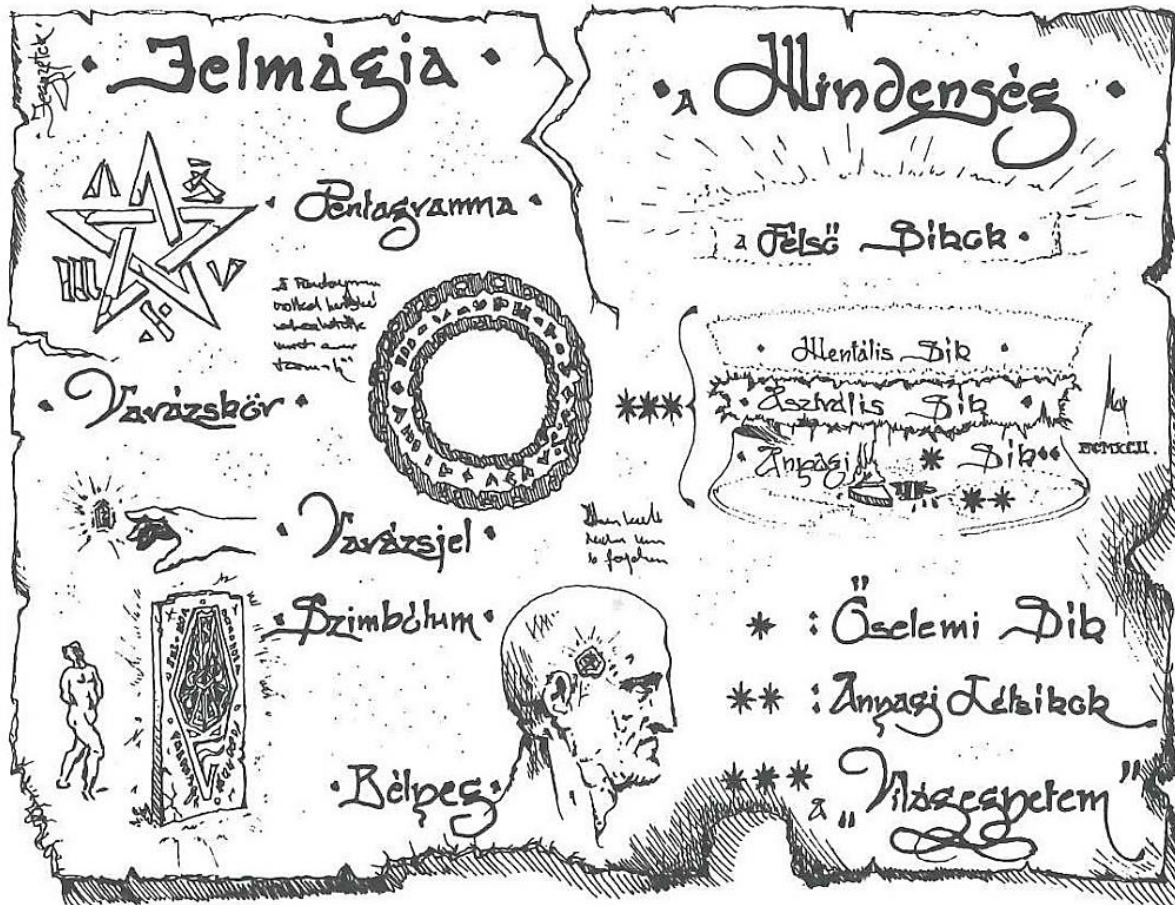 Jegyzetek
· Jelmágia ·
· Pentagramma ·
· Varázskör ·
· Varázsjel ·
· Szimbólum ·
· Bélyeg ·
· A Mindenség ·
a Felső Síkok ·
· Mentális Sík ·
*** · Asztrális Sík ·
· Anyagi * Sík **
* : Őselemi Sík
** : Anyagi Létsíkok
*** : A „Világegyetem"